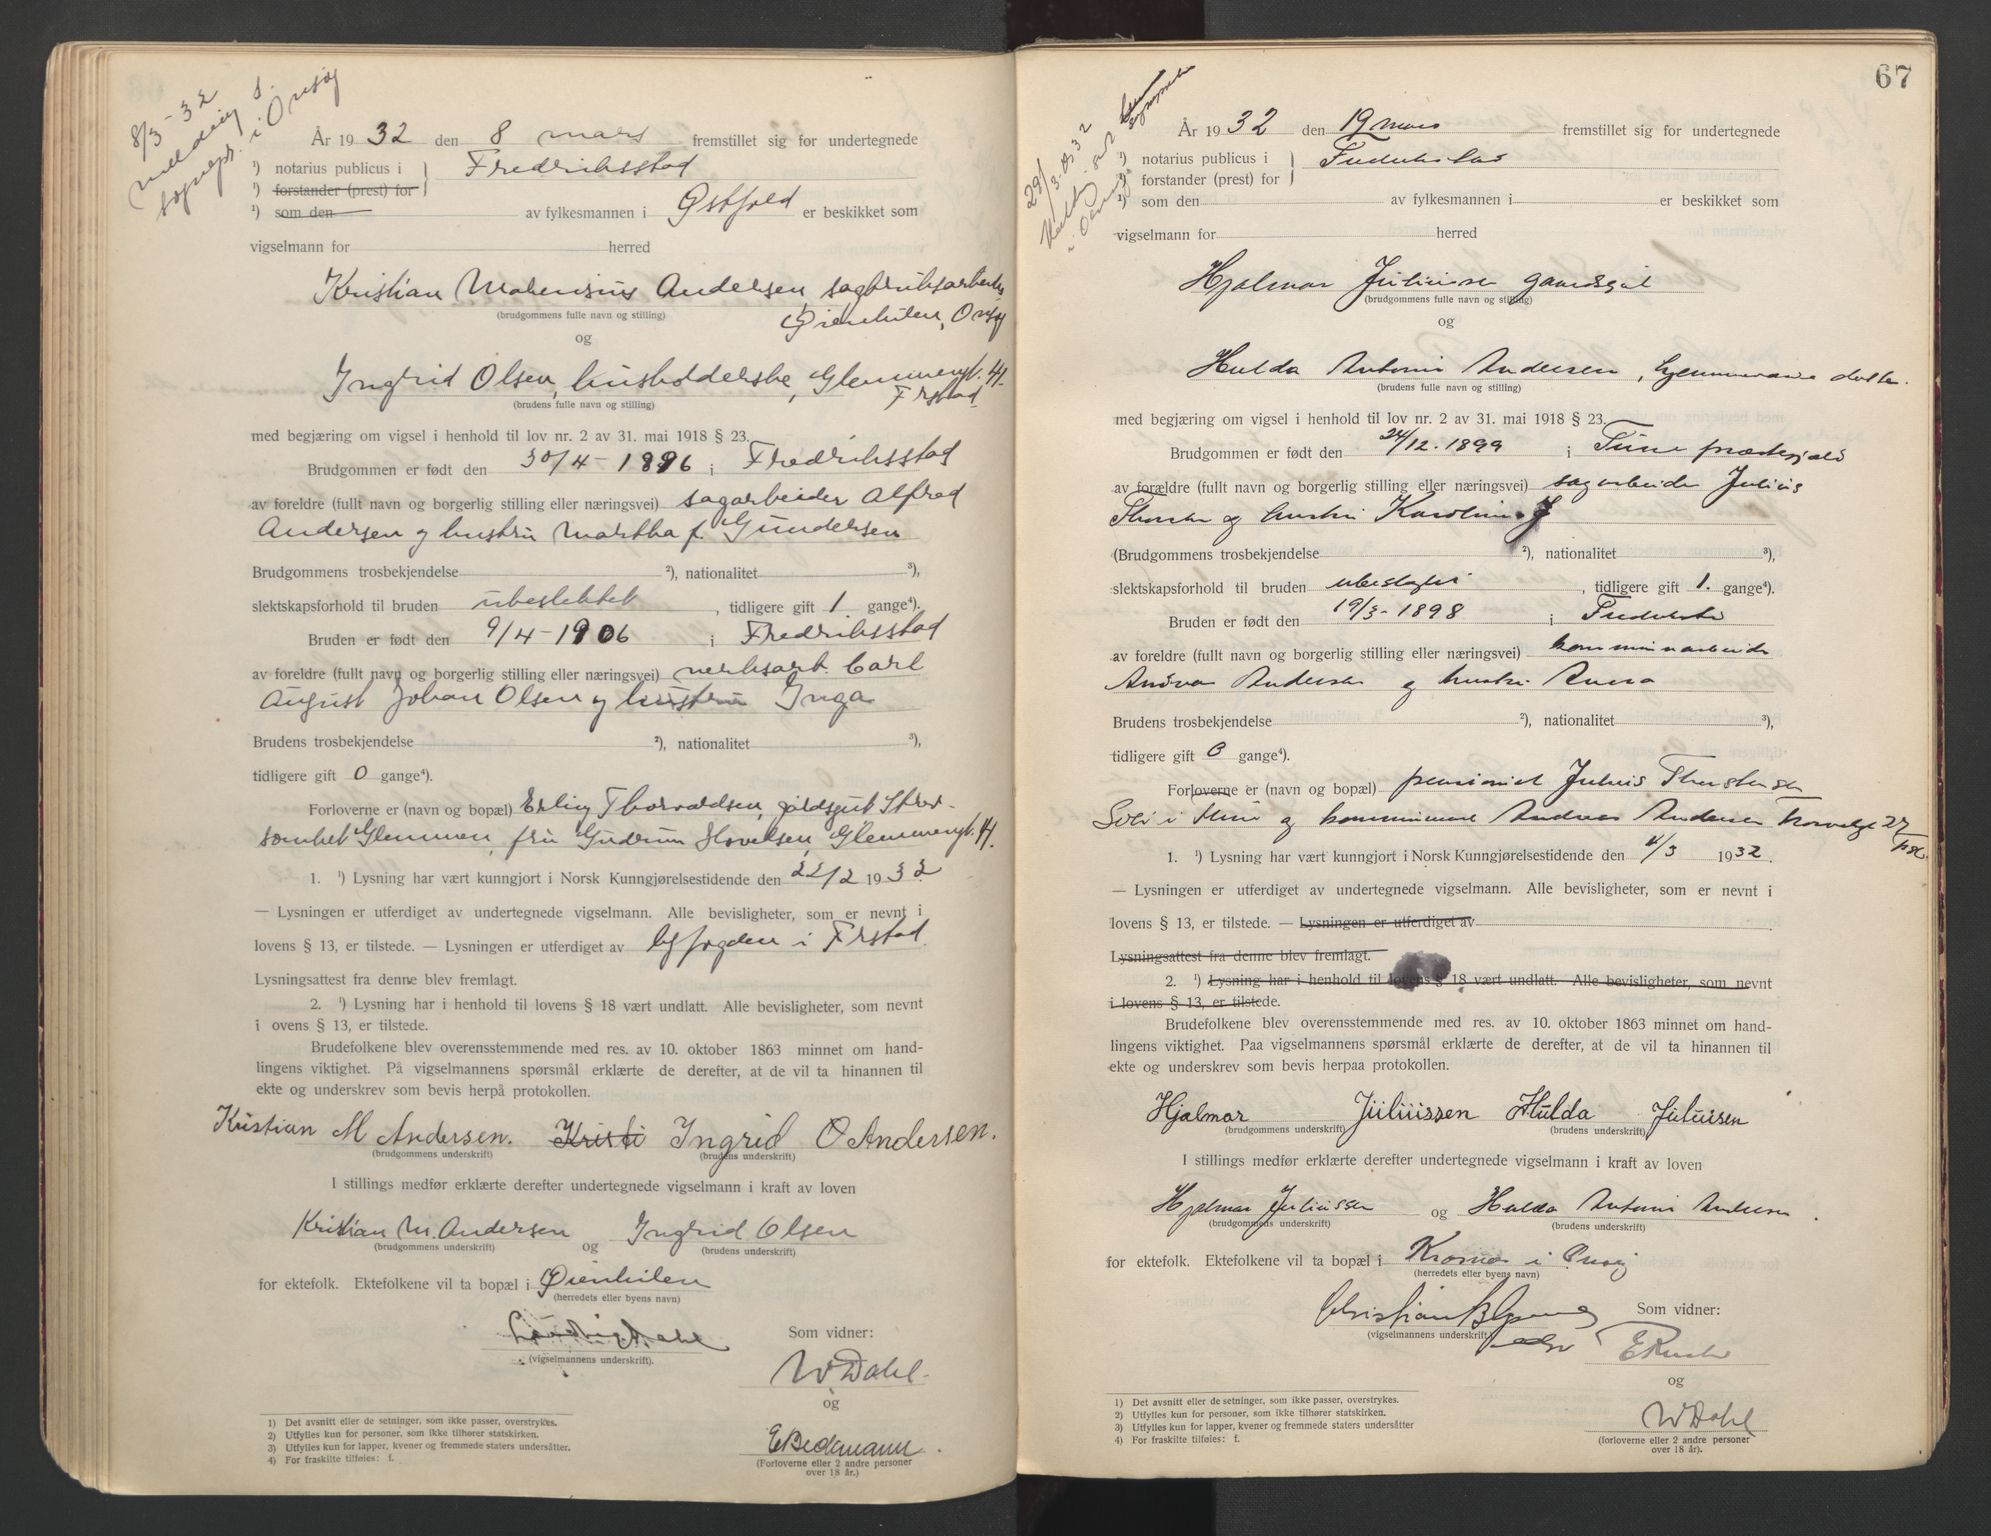 8/3-32
melding s.
sognepr. i Onsøy
År 1932 den 8 mars fremstillet sig for undertegnede
¹) notarius publicus i Fredriksstad
¹) forstander (prest) for
¹) som den av fylkesmannen i Østfold er beskikket som
vigselmann for herred
Kristian Marensius Andersen, sagbruksarbeider
(brudgommens fulle navn og stilling) Øienkilen, Onsøy
og
Ingrid Olsen, husholderske, Glemmengt. 41.
(brudens fulle navn og stilling) Frstad
med begjæring om vigsel i henhold til lov nr. 2 av 31. mai 1918 § 23.
Brudgommen er født den 30/4-1896 i Fredriksstad
av foreldre (fullt navn og borgerlig stilling eller næringsvei) sagarbeider Alfred
Andersen og hustru Martha f. Gundersen
Brudgommens trosbekjendelse ²), nationalitet ³),
slektskapsforhold til bruden ubeslektet, tidligere gift 1 gange⁴).
Bruden er født den 9/4-1906 i Fredriksstad
av foreldre (fullt navn og borgerlig stilling eller næringsvei) verksarb. Carl
August Johan Olsen og hustru Inga
Brudens trosbekjendelse ²), nationalitet ³),
tidligere gift 0 gange⁴).
Forloverne er (navn og bopæl) Erling Thorvaldsen, gårdsgut
Glemmen, fru Gudrun Glemmengt. 41.
1. ¹) Lysning har vært kunngjort i Norsk Kunngjørelsestidende den 22/2 1932
— Lysningen er utferdiget av undertegnede vigselmann. Alle bevisligheter, som er nevnt i
lovens § 13, er tilstede. — Lysningen er utferdiget av byfogden i Frstad.
Lysningsattest fra denne blev fremlagt.
2. ¹) Lysning har i henhold til lovens § 18 vært undlatt. Alle bevisligheter, som nevnt
i ovens § 13, er tilstede.
Brudefolkene blev overensstemmende med res. av 10. oktober 1863 minnet om hand-
lingens viktighet. På vigselmannens spørsmål erklærte de derefter, at de vil ta hinannen til
ekte og underskrev som bevis herpå protokollen.
Kristian M Andersen. Kristi Ingrid O Andersen.
(brudgommens underskrift) (brudens underskrift)
I stillings medfør erklærte derefter undertegnede vigselmann i kraft av loven
Kristian M. Andersen og Ingrid Olsen
(brudgommens underskrift) (brudens underskrift)
for ektefolk. Ektefolkene vil ta bopæl i Øienkilen
(herredets eller byens navn)
Dahl Som vidner:
(vigselmannens underskrift).
W Dahl.
og
E Beckmann.
(Forloverne eller 2 andre personer
over 18 år.)
1) Det avsnitt eller de setninger, som ikke passer, overstrykes.
2) Utfylles kun for personer, som ikke tilhører statskirken.
3) Utfylles kun for lapper, kvener og fremmede staters undersåtter.
4) For fraskilte tilføies: f.
67
År 1932 den 19 mars fremstillet sig for undertegnede
¹) notarius publicus i Fredriksstad
¹) forstander (prest) for
¹) som den av fylkesmannen i er beskikket som
vigselmann for herred
Hjalmar Juliussen gaardsgut
(brudgommens fulle navn og stilling)
og
Hulda Antonie Andersen, hjemmeværende datter.
(brudens fulle navn og stilling)
med begjæring om vigsel i henhold til lov nr. 2 av 31. mai 1918 § 23.
Brudgommen er født den 24/12.1899 i Tune præstegjæld
av forældre (fullt navn og borgerlig stilling eller næringsvei) sagarbeider Julius
og hustru Karoline J
(Brudgommens trosbekjendelse ²), nationalitet ³),
slektskapsforhold til bruden ubeslegtet, tidligere gift 1. gange⁴).
Bruden er født den 19/3-1898 i Fredrikstad
av foreldre (fullt navn og borgerlig stilling eller næringsvei) kommunearbeider
Andreas Andersen og hustru Anna
Brudens trosbekjendelse ²), nationalitet ³),
tidligere gift 0 gange⁴).
Forloverne er (navn og bopæl) pensionist Julius Thorstensen
i Tune og kommunearb Andreas Andersen 27
1. ¹) Lysning har vært kunngjort i Norsk Kunngjørelsestidende den 4/3 1932.
— Lysningen er utferdiget av undertegnede vigselmann. Alle bevisligheter, som er nevnt i
lovens § 13, er tilstede. — Lysningen er utferdiget av
Lysningsattest fra denne blev fremlagt.
2. ¹) Lysning har i henhold til lovens § 18 vært undlatt. Alle bevisligheter, som nevnt
i lovens § 13, er tilstede.
Brudefolkene blev overensstemmende med res. av 10. oktober 1863 minnet om hand-
lingens viktighet. Paa vigselmannens spørsmål erklærte de derefter, at de vil ta hinannen til
ekte og underskrev som bevis herpaa protokollen.
Hjalmar Juliussen Hulda Juliussen
(brudgommens underskrift) (brudens underskrift)
I stillings medfør erklærte derefter undertegnede vigselmann i kraft av loven
Hjalmar Juliussen og Hulda Antonie Andersen.
(brudgommens underskrift) (brudens underskrift)
for ektefolk. Ektefolkene vil ta bopæl i Kraakerø i Onsøy
(herredets eller byens navn)
Christian Som vidner:
(vigselmannens underskrift)
og
W Dahl
(forloverne eller 2 andre personer
over 18 år).
1) Det avsnitt eller de setninger, som ikke passer, overstrykes.
2) Utfylles kun for personer, som ikke tilhører statskirken.
3) Utfylles kun for lapper, kvener og fremmede staters undersåtter
4) For fraskilte tilføies: f.